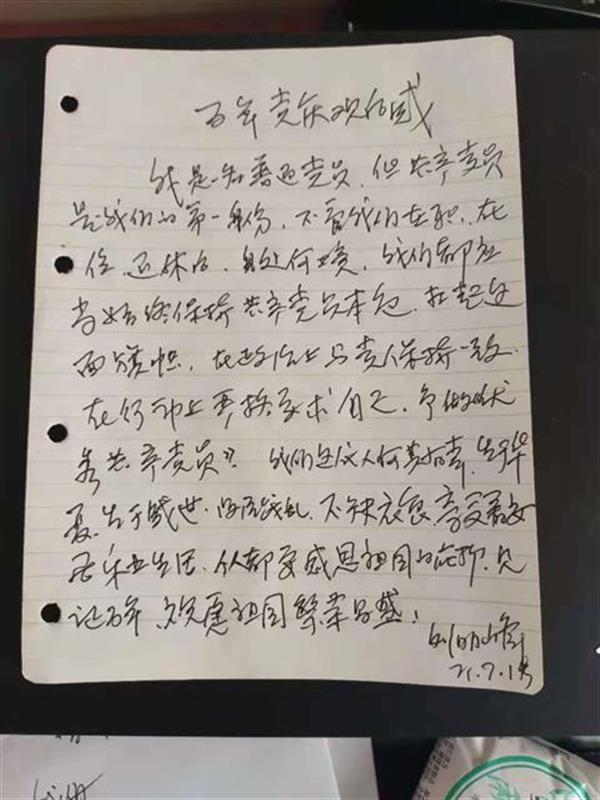 百年党庆观后感
我是一名普通党员，但共产党员
是我们的第一身份，不管我们在职、在
位、退休后，身处何境，我们都应
当始终保持共产党员本色，扛起这
面旗帜，在政治上与党保持一致，
在行动上严格要求自己，争做优
秀共产党员？我们这代人何其有幸，生于华
夏，生于盛世，没有战乱，不缺衣食，享受着安
居乐业生活，感恩祖国的庇护，见
证百年，祝愿祖国繁荣昌盛！
刘明峰
21.7.1号